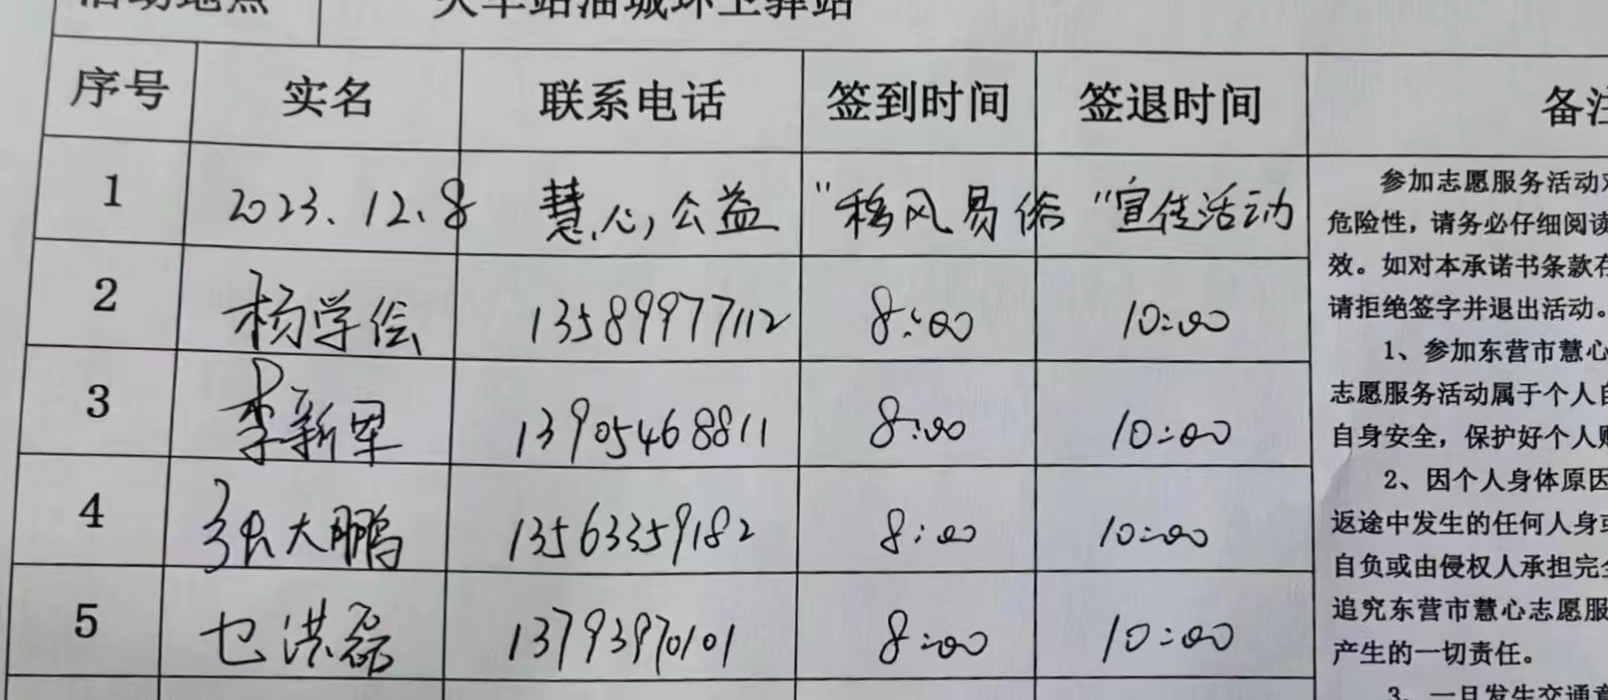 活动地点 火车站油城环卫驿站
序号 实名 联系电话 签到时间 签退时间 备注
1 2023.12.8 慧心公益 "移风易俗"宣传活动
2 杨学绘 13589977112 8:00 10:00
3 李新军 13905468811 8:00 10:00
4 张大鹏 13563359182 8:00 10:00
5 七洪磊 13793970101 8:00 10:00
参加志愿服务活动
危险性，请务必仔细阅读
效。如对本承诺书条款存
请拒绝签字并退出活动。
1、参加东营市慧心
志愿服务活动属于个人自
自身安全，保护好个人财
2、因个人身体原因
返途中发生的任何人身或
自负或由侵权人承担完全
追究东营市慧心志愿服
产生的一切责任。
3、一旦发生交通意